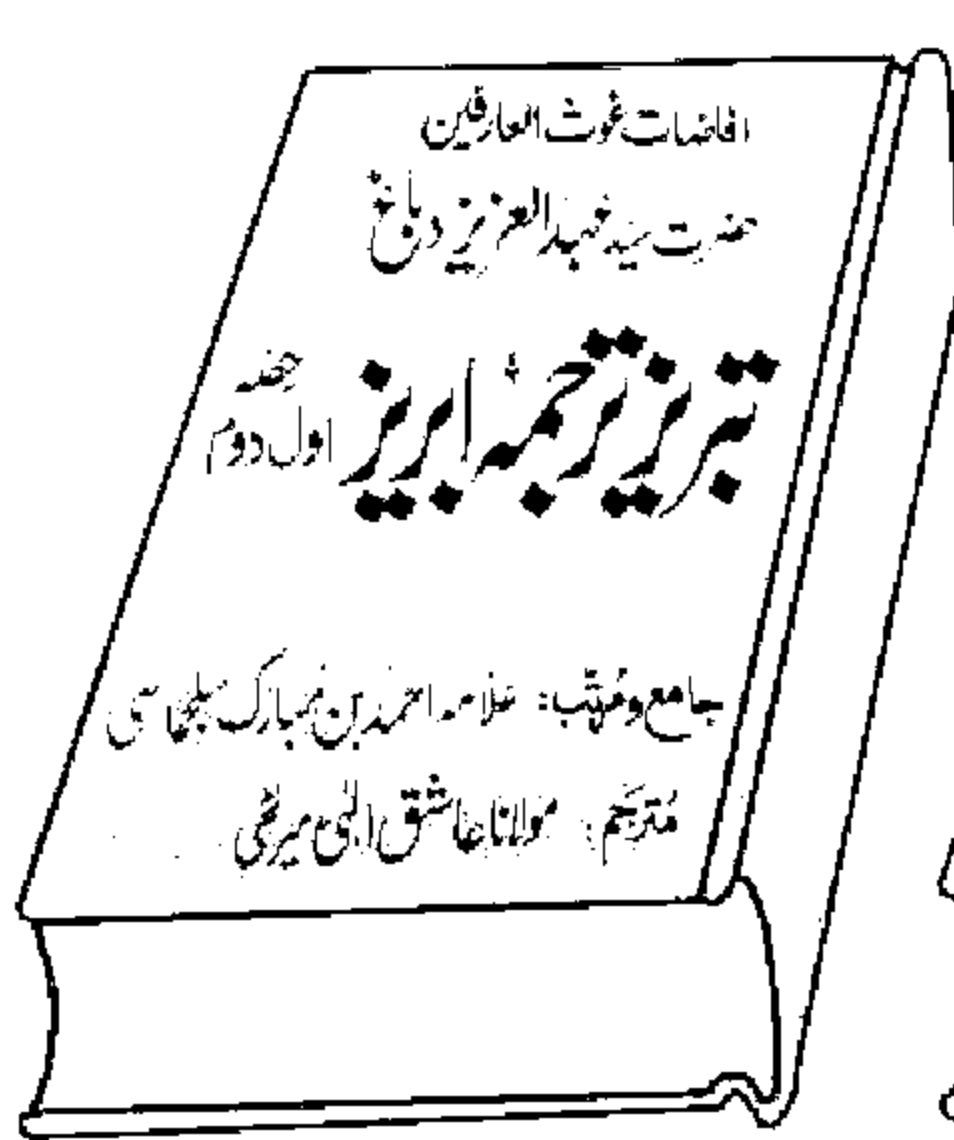 افاضات غوث العارفین
حضرت سید عبدالعزیز دباغ
تبریز ترجمۂ ابریز حصہ
اول دوم
جامع و مُرتّب: علامہ احمد بن مُبارک سلجماسی
مُترجم: مولانا عاشق الٰہی میرٹھی